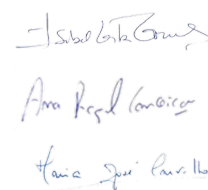 Isabel Costa Gomes
Ana Raquel Conceição
Maria José Carvalho